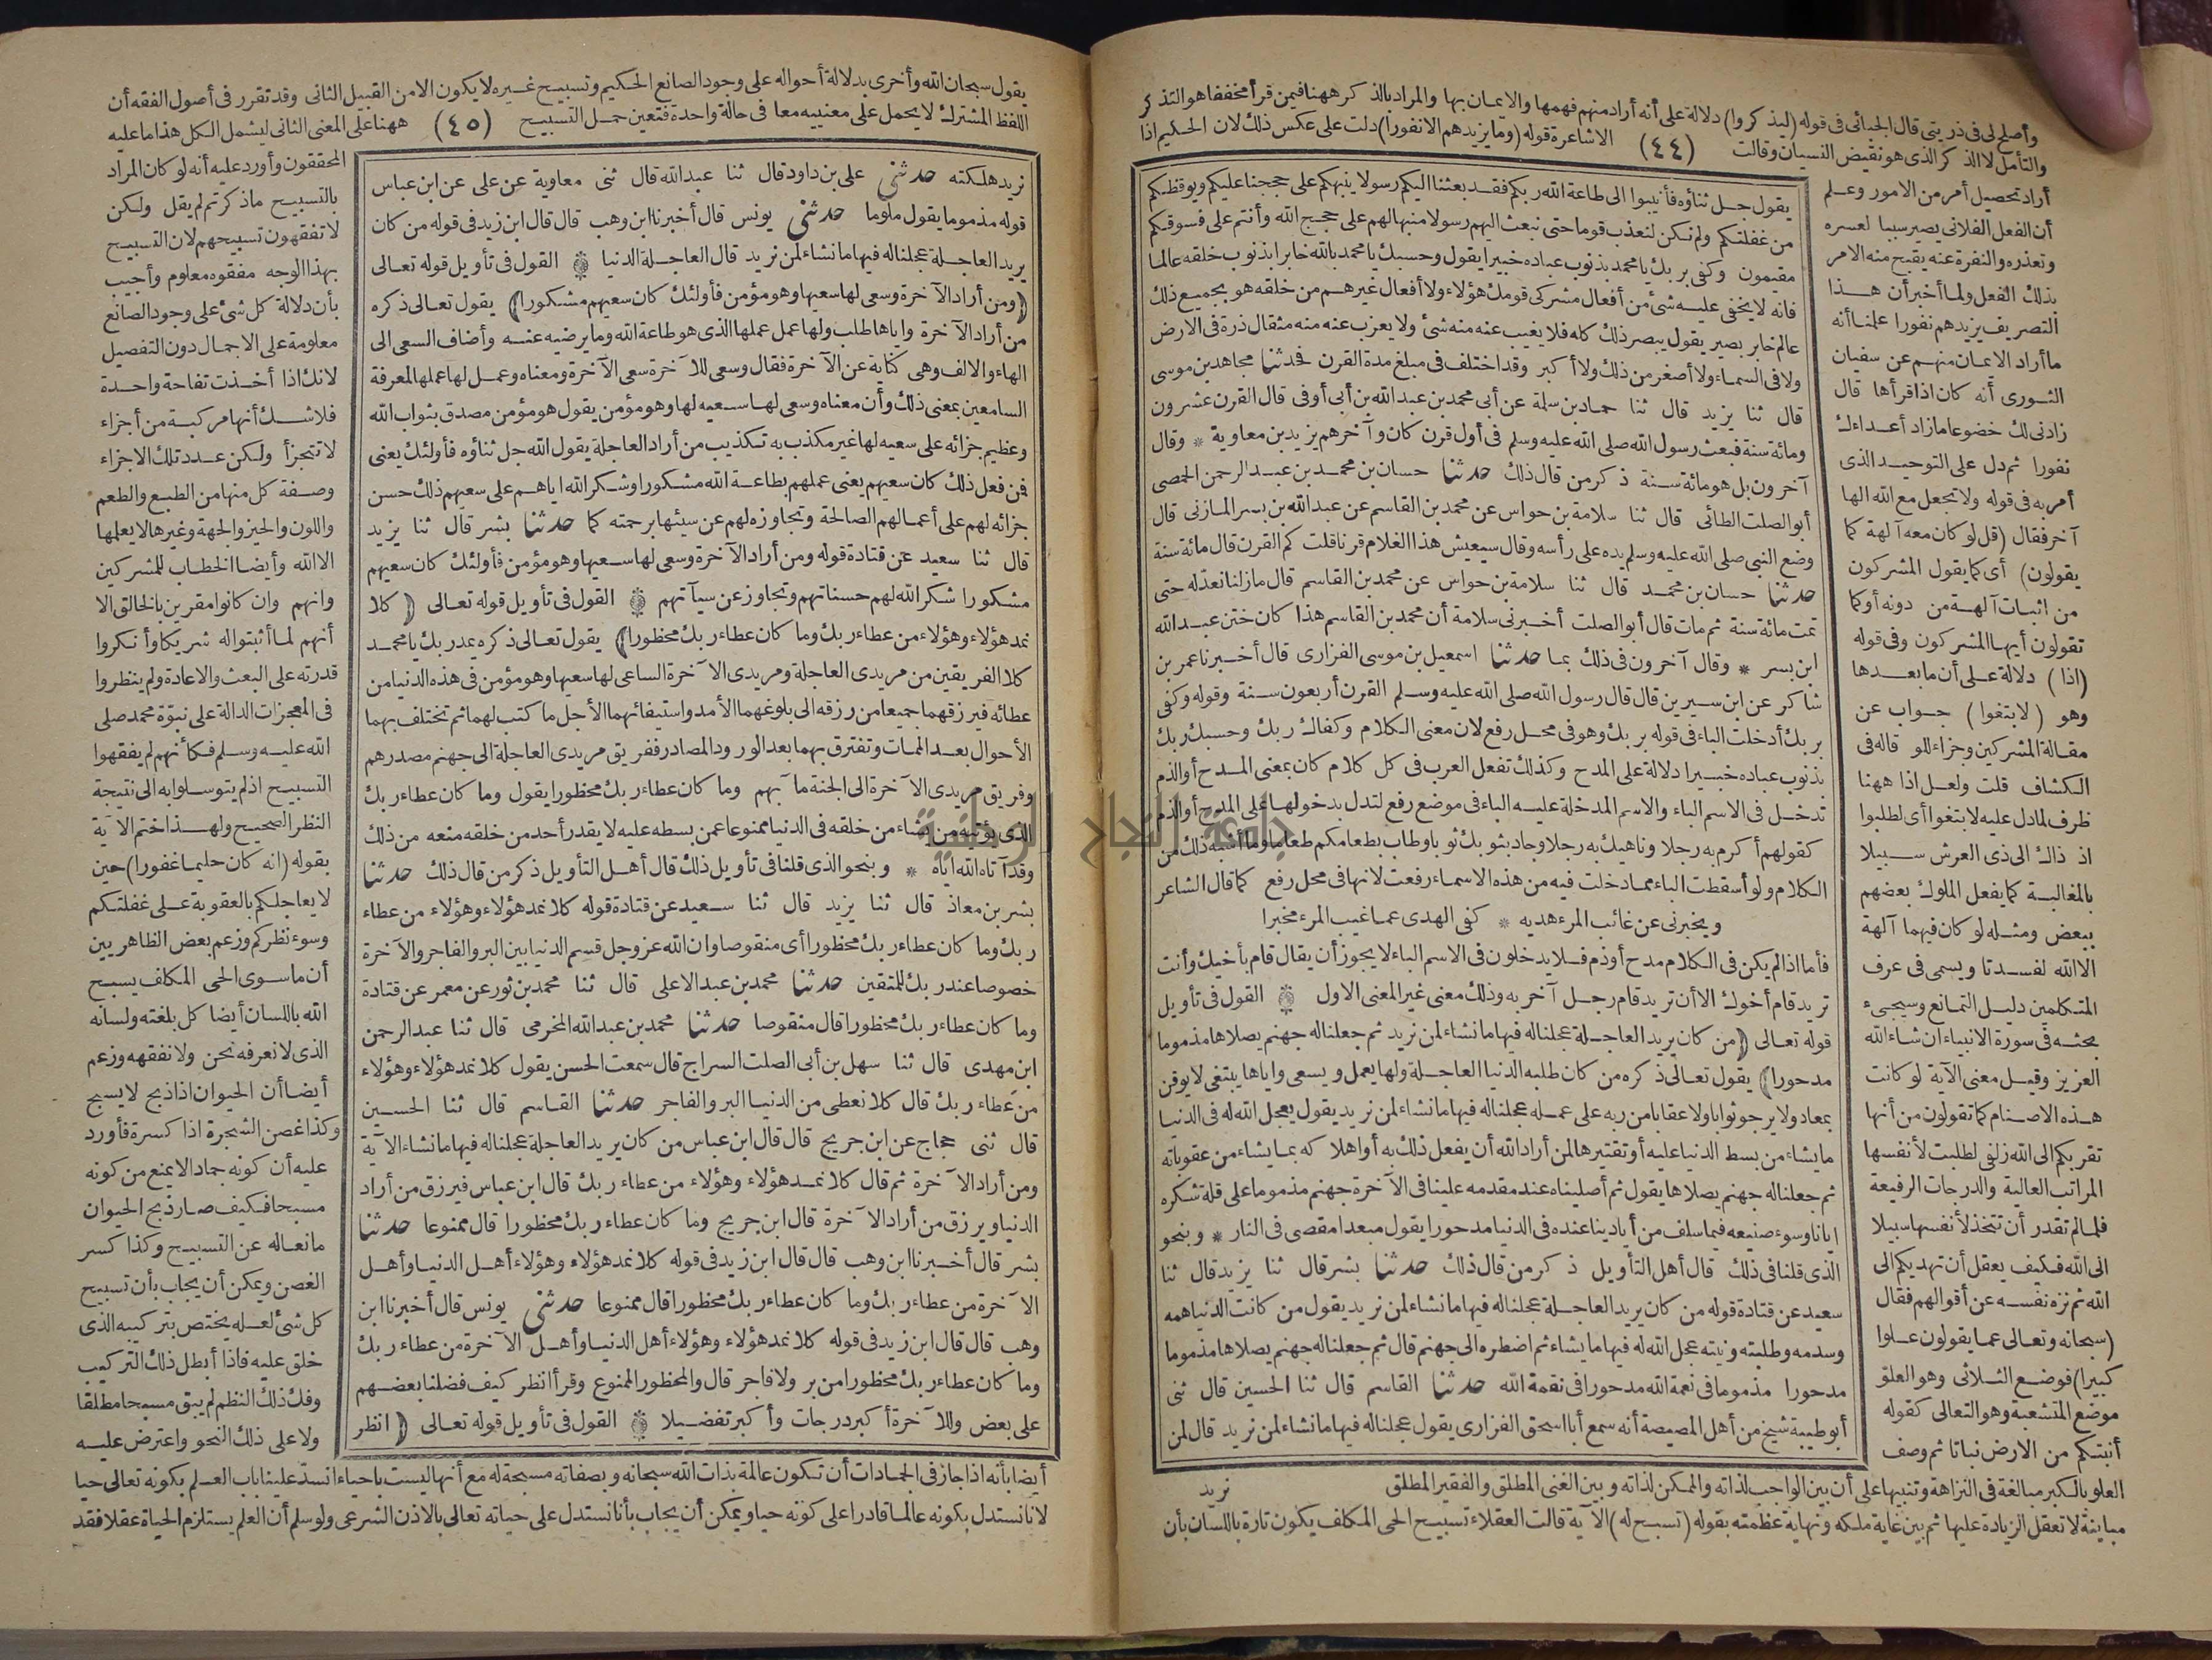 وأصلح لى فى ذريتى قال الجبائى فى قوله (ليذكروا) دلالة على أنه أراد منهم فهمها والايمان بها والمراد بالذكر ههنا فيمن قرأ مخففا هو التذكر
والتأمل لا الذكر الذى هو نقيض النسيان وقالت (٤٤) الاشاعرة قوله (وما يزيدهم الا نفورا) دلت على عكس ذلك لان الحكيم اذا
أراد تحصيل أمر من الامور وعلم
أن الفعل الفلانى يصير سببا لعسره
وتعذره والنفرة عنه يقبح منه الامر
بذلك الفعل ولما أخبر أن هذا
التصريف يزيدهم نفورا علمنا أنه
ما أراد الايمان منهم عن سفيان
الثورى أنه كان اذا قرأها قال
زادنى لك خضوعا ما زاد أعداءك
نفورا ثم دل على التوحيد الذى
أمر به فى قوله ولا تجعل مع الله الها
آخر فقال (قل لو كان معه آلهة كما
يقولون) أى كما يقول المشركون
من اثبات آلهة من دونه أو كما
تقولون أيها المشركون وفى قوله
(اذا) دلالة على أن ما بعدها
وهو (لابتغوا) جواب عن
مقالة المشركين وجزاء للو قاله فى
الكشاف قلت ولعل اذا ههنا
ظرف لما دل عليه لابتغوا أى لطلبوا
اذ ذاك الى ذى العرش سبيلا
بالمغالبة كما يفعل الملوك بعضهم
ببعض ومثله لو كان فيهما آلهة
الا الله لفسدتا ويسمى فى عرف
المتكلمين دليل التمانع وسيجىء
بحثه فى سورة الانبياء ان شاء الله
العزيز وقيل معنى الآية لو كانت
هذه الاصنام كما تقولون من أنها
تقربكم الى الله زلفى لطلبت لأنفسها
المراتب العالية والدرجات الرفيعة
فلما لم تقدر أن تتخذ لأنفسها سبيلا
الى الله فكيف يعقل أن تهديكم الى
الله ثم نزه نفسه عن أقوالهم فقال
(سبحانه وتعالى عما يقولون علوا
كبيرا) فوضع الثلاثى وهو العلو
موضع المتشعبة وهو التعالى كقوله
أنبتكم من الارض نباتا ثم وصف
يقول جل ثناؤه فأنيبوا الى طاعة الله ربكم فقد بعثنا اليكم رسولا ينبهكم على حججنا عليكم ويوقظكم
من غفلتكم ولم نكن لنعذب قوما حتى نبعث اليهم رسولا منبها لهم على حجج الله وأنتم على فسوقكم
مقيمون وكفى بربك يا محمد بذنوب عباده خبيرا يقول وحسبك يا محمد بالله خابرا بذنوب خلقه عالما
فانه لا يخفى عليه شىء من أفعال مشركى قومك هؤلاء ولا أفعال غيرهم من خلقه هو بجميع ذلك
عالم خابر بصير يقول يبصر ذلك كله فلا يغيب عنه منه شئ ولا يعزب عنه منه مثقال ذرة فى الارض
ولا فى السماء ولا أصغر من ذلك ولا أكبر وقد اختلف فى مبلغ مدة القرن فحدثنا مجاهد بن موسى
قال ثنا يزيد قال ثنا حماد بن سلمة عن أبى محمد بن عبد الله بن أبى أوفى قال القرن عشرون
ومائة سنة فبعث رسول الله صلى الله عليه وسلم فى أول قرن كان وآخرهم يزيد بن معاوية * وقال
آخرون بل هو مائة سنة ذكر من قال ذلك حدثنا حسان بن محمد بن عبد الرحمن الحمصى
أبو الصلت الطائى قال ثنا سلامة بن حواس عن محمد بن القاسم عن عبد الله بن بسر المازنى قال
وضع النبى صلى الله عليه وسلم يده على رأسه وقال سيعيش هذا الغلام قرنا قلت كم القرن قال مائة سنة
حدثنا حسان بن محمد قال ثنا سلامة بن حواس عن محمد بن القاسم قال ما زلنا نعد له حتى
تمت مائة سنة ثم مات قال أبو الصلت أخبرنى سلامة أن محمد بن القاسم هذا كان ختن عبد الله
ابن بسر * وقال آخرون فى ذلك بما حدثنا اسمعيل بن موسى الفزارى قال أخبرنا عمر بن
شاكر عن ابن سيرين قال قال رسول الله صلى الله عليه وسلم القرن أربعون سنة وقوله وكفى
بربك أدخلت الباء فى قوله بربك وهو فى محل رفع لان معنى الكلام وكفاك ربك وحسبك ربك
بذنوب عباده خبيرا دلالة على المدح وكذلك تفعل العرب فى كل كلام كان بمعنى المدح أو الذم
تدخل فى الاسم الباء والاسم المدخلة عليه الباء فى موضع رفع لتدل بدخولها على المدح أو الذم
كقولهم أكرم به رجلا وناهيك به رجلا وجاد بثوبك ثوبا وطاب بطعامكم طعاما وما أشبه ذلك من
الكلام ولو أسقطت الباء مما دخلت فيه من هذه الاسماء رفعت لانها فى محل رفع كما قال الشاعر
ويخبرنى عن غائب المرء هديه * كفى الهدى عما غيب المرء مخبرا
فأما اذا لم يكن فى الكلام مدح أو ذم فلا يدخلون فى الاسم الباء لا يجوز أن يقال قام بأخيك وأنت
تريد قام أخوك الا أن تريد قام رجل آخر به وذلك معنى غير المعنى الاول القول فى تأويل
قوله تعالى (من كان يريد العاجلة عجلنا له فيها ما نشاء لمن نريد ثم جعلنا له جهنم يصلاها مذموما
مدحورا) يقول تعالى ذكره من كان طلبه الدنيا العاجلة ولها يعمل ويسعى واياها يبتغى لا يوقن
بمعاد ولا يرجو ثوابا ولا عقابا من ربه على عمله عجلنا له فيها ما نشاء لمن نريد يقول يعجل الله له فى الدنيا
ما يشاء من بسط الدنيا عليه أو تقتيرها لمن أراد الله أن يفعل ذلك به أو اهلاكه بما يشاء من عقوباته
ثم جعلنا له جهنم يصلاها يقول ثم أصليناه عند مقدمه علينا فى الآخرة جهنم مذموما على قلة شكره
ايانا وسوء صنيعه فيما سلف من أيادينا عنده فى الدنيا مدحورا يقول مبعدا مقصى فى النار * وبنحو
الذى قلنا فى ذلك قال أهل التأويل ذكر من قال ذلك حدثنا بشر قال ثنا يزيد قال ثنا
سعيد عن قتادة قوله من كان يريد العاجلة عجلنا له فيها ما نشاء لمن نريد يقول من كانت الدنيا همه
وسدمه وطلبته ونيته عجل الله له فيها ما يشاء ثم اضطره الى جهنم قال ثم جعلنا له جهنم يصلاها مذموما
مدحورا مذموما فى نعمة الله مدحورا فى نقمة الله حدثنا القاسم قال ثنا الحسين قال ثنى
أبو طيبة شيخ من أهل المصيصة أنه سمع أبا اسحق الفزارى يقول عجلنا له فيها ما نشاء لمن نريد قال لمن
العلو بالكبر مبالغة فى النزاهة وتنبيها على أن بين الواجب لذاته والممكن لذاته وبين الغنى المطلق والفقير المطلق نريد
مباينة لا تعقل الزيادة عليها ثم بين غاية ملكه ونهاية عظمته بقوله (تسبح له) الآية قالت العقلاء تسبيح الحى المكلف يكون تارة باللسان بأن
يقول سبحان الله وأخرى بدلالة أحواله على وجود الصانع الحكيم وتسبيح غيره لا يكون الا من القبيل الثانى وقد تقرر فى أصول الفقه أن
اللفظ المشترك لا يحمل على معنييه معا فى حالة واحدة فتعين حمل التسبيح (٤٥) ههنا على المعنى الثانى ليشمل الكل هذا ما عليه
نريد هلكته حدثنى على بن داود قال ثنا عبد الله قال ثنى معاوية عن على عن ابن عباس
قوله مذموما يقول ملوما حدثنى يونس قال أخبرنا ابن وهب قال قال ابن زيد فى قوله من كان
يريد العاجلة عجلنا له فيها ما نشاء لمن نريد قال العاجلة الدنيا القول فى تأويل قوله تعالى
(ومن أراد الآخرة وسعى لها سعيها وهو مؤمن فأولئك كان سعيهم مشكورا) يقول تعالى ذكره
من أراد الآخرة واياها طلب ولها عمل عملها الذى هو طاعة الله وما يرضيه عنه وأضاف السعى الى
الهاء والالف وهى كناية عن الآخرة فقال وسعى للآخرة سعى الآخرة ومعناه وعمل لها عملها لمعرفة
السامعين بمعنى ذلك وأن معناه وسعى لها سعيه لها وهو مؤمن يقول هو مؤمن مصدق بثواب الله
وعظيم جزائه على سعيه لها غير مكذب به تكذيب من أراد العاجلة يقول الله جل ثناؤه فأولئك يعنى
فمن فعل ذلك كان سعيهم يعنى عملهم بطاعة الله مشكورا وشكر الله اياهم على سعيهم ذلك حسن
جزائه لهم على أعمالهم الصالحة وتجاوزه لهم عن سيئها برحمته كما حدثنا بشر قال ثنا يزيد
قال ثنا سعيد عن قتادة قوله ومن أراد الآخرة وسعى لها سعيها وهو مؤمن فأولئك كان سعيهم
مشكورا شكر الله لهم حسناتهم وتجاوز عن سيآتهم القول فى تأويل قوله تعالى (كلا
نمد هؤلاء وهؤلاء من عطاء ربك وما كان عطاء ربك محظورا) يقول تعالى ذكره يمد ربك يا محمد
كلا الفريقين من مريدى العاجلة ومريدى الآخرة الساعى لها سعيها وهو مؤمن فى هذه الدنيا من
عطائه فيرزقهما جميعا من رزقه الى بلوغهما الأمد واستيفائهما الأجل ما كتب لهما ثم تختلف بهما
الأحوال بعد الممات وتفترق بهما بعد الورود المصادر ففريق مريدى العاجلة الى جهنم مصدرهم
وفريق مريدى الآخرة الى الجنة مآبهم وما كان عطاء ربك محظورا يقول وما كان عطاء ربك
الذى يؤتيه من يشاء من خلقه فى الدنيا ممنوعا عمن بسطه عليه لا يقدر أحد من خلقه منعه من ذلك
وقد آتاه الله اياه * وبنحو الذى قلنا فى تأويل ذلك قال أهل التأويل ذكر من قال ذلك حدثنا
بشر بن معاذ قال ثنا يزيد قال ثنا سعيد عن قتادة قوله كلا نمد هؤلاء وهؤلاء من عطاء
ربك وما كان عطاء ربك محظورا أى منقوصا وان الله عز وجل قسم الدنيا بين البر والفاجر والآخرة
خصوصا عند ربك للمتقين حدثنا محمد بن عبد الاعلى قال ثنا محمد بن ثور عن معمر عن قتادة
وما كان عطاء ربك محظورا قال منقوصا حدثنا محمد بن عبد الله المخرمى قال ثنا عبد الرحمن
ابن مهدى قال ثنا سهل بن أبى الصلت السراج قال سمعت الحسن يقول كلا نمد هؤلاء وهؤلاء
من عطاء ربك قال كلا نعطى من الدنيا البر والفاجر حدثنا القاسم قال ثنا الحسين
قال ثنى حجاج عن ابن جريج قال قال ابن عباس من كان يريد العاجلة عجلنا له فيها ما نشاء الآية
ومن أراد الآخرة ثم قال كلا نمد هؤلاء وهؤلاء من عطاء ربك قال ابن عباس فيرزق من أراد
الدنيا ويرزق من أراد الآخرة قال ابن جريج وما كان عطاء ربك محظورا قال ممنوعا حدثنا
بشر قال أخبرنا ابن وهب قال قال ابن زيد فى قوله كلا نمد هؤلاء وهؤلاء أهل الدنيا وأهل
الآخرة من عطاء ربك وما كان عطاء ربك محظورا قال ممنوعا حدثنى يونس قال أخبرنا ابن
وهب قال قال ابن زيد فى قوله كلا نمد هؤلاء وهؤلاء أهل الدنيا وأهل الآخرة من عطاء ربك
وما كان عطاء ربك محظورا من بر ولا فاجر قال والمحظور الممنوع وقرأ انظر كيف فضلنا بعضهم
على بعض وللآخرة أكبر درجات وأكبر تفضيلا القول فى تأويل قوله تعالى (انظر
المحققون وأورد عليه أنه لو كان المراد
بالتسبيح ما ذكرتم لم يقل ولكن
لا تفقهون تسبيحهم لان التسبيح
بهذا الوجه مفقوه معلوم وأجيب
بأن دلالة كل شئ على وجود الصانع
معلومة على الاجمال دون التفصيل
لانك اذا أخذت تفاحة واحدة
فلا شك أنها مركبة من أجزاء
لا تتجزأ ولكن عدد تلك الاجزاء
وصفة كل منها من الطبع والطعم
واللون والحيز والجهة وغيرها لا يعلمها
الا الله وأيضا الخطاب للمشركين
وانهم وان كانوا مقرين بالخالق الا
أنهم لما أثبتوا له شريكا وأنكروا
قدرته على البعث والاعادة ولم ينظروا
فى المعجزات الدالة على نبوة محمد صلى
الله عليه وسلم فكأنهم لم يفقهوا
التسبيح اذ لم يتوسلوا به الى نتيجة
النظر الصحيح ولهذا ختم الآية
بقوله (انه كان حليما غفورا) حين
لا يعاجلكم بالعقوبة على غفلتكم
وسوء نظركم وزعم بعض الظاهريين
أن ما سوى الحى المكلف يسبح
الله باللسان أيضا كل بلغته ولسانه
الذى لا نعرفه نحن ولا نفقهه وزعم
أيضا أن الحيوان اذا ذبح لا يسبح
وكذا غصن الشجرة اذا كسرة فأورد
عليه أن كونه جمادا لا يمنع من كونه
مسبحا فكيف صار ذبح الحيوان
مانعا له عن التسبيح وكذا كسر
الغصن ويمكن أن يجاب بأن تسبيح
كل شئ لعله يختص بتركيبه الذى
خلق عليه فاذا أبطل ذلك التركيب
وفك ذلك النظم لم يبق مسبحا مطلقا
ولا على ذلك النحو واعترض عليه
أيضا بأنه اذا جاز فى الجمادات أن تكون عالمة بذات الله سبحانه وبصفاته مسبحة له مع أنها ليست باحياء انسد علينا باب العلم بكونه تعالى حيا
لانا نستدل بكونه عالما قادرا على كونه حيا ويمكن أن يجاب بأنا نستدل على حياته تعالى بالاذن الشرعى ولو سلم أن العلم يستلزم الحياة عقلا فقد
جامعة النجاح الوطنية